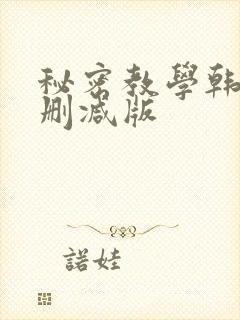 秘密教學韩
删减版
諾娃